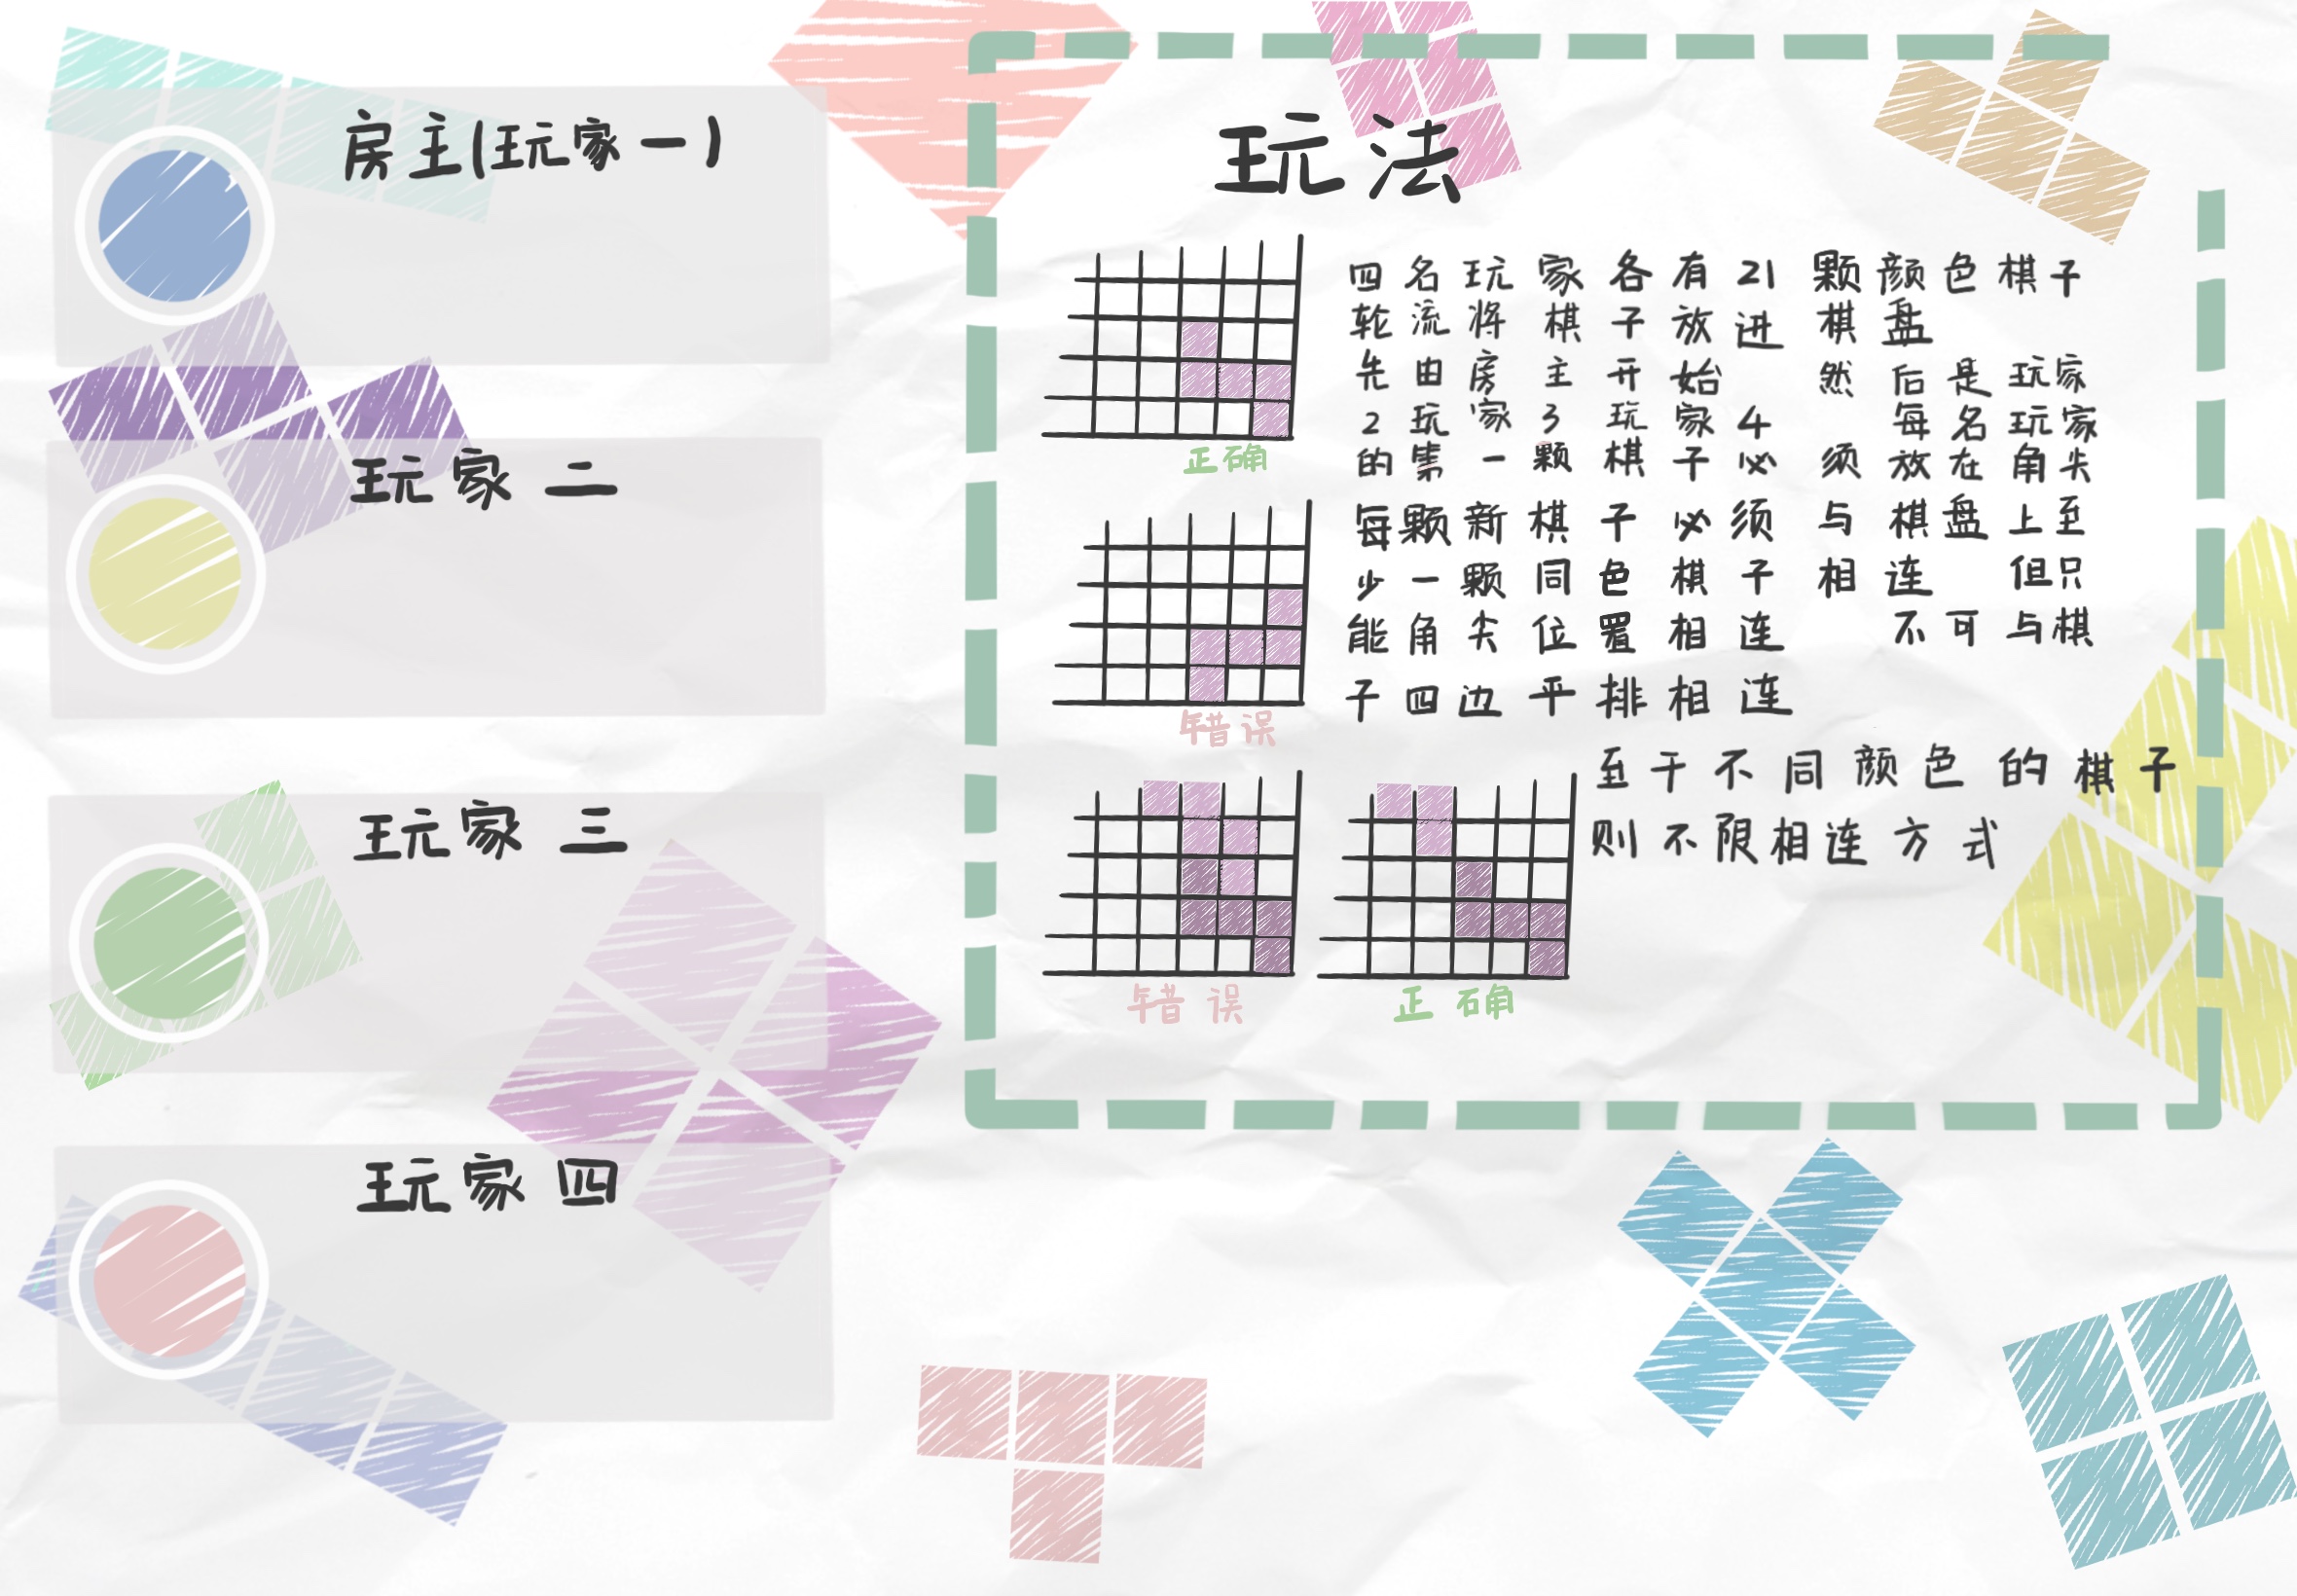 房主(玩家一)
玩家二
玩家三
玩家四
玩法
四名玩家各有21颗颜色棋子
轮流将棋子放进棋盘
先由房主开始 然后是玩家
2玩家3玩家4 每名玩家
的第一颗棋子必须放在角尖
每颗新棋子必须与棋盘上至
少一颗同色棋子相连 但只
能角尖位置相连 不可与棋
子四边平排相连
至于不同颜色的棋子
则不限相连方式
正确
错误
错误
正确